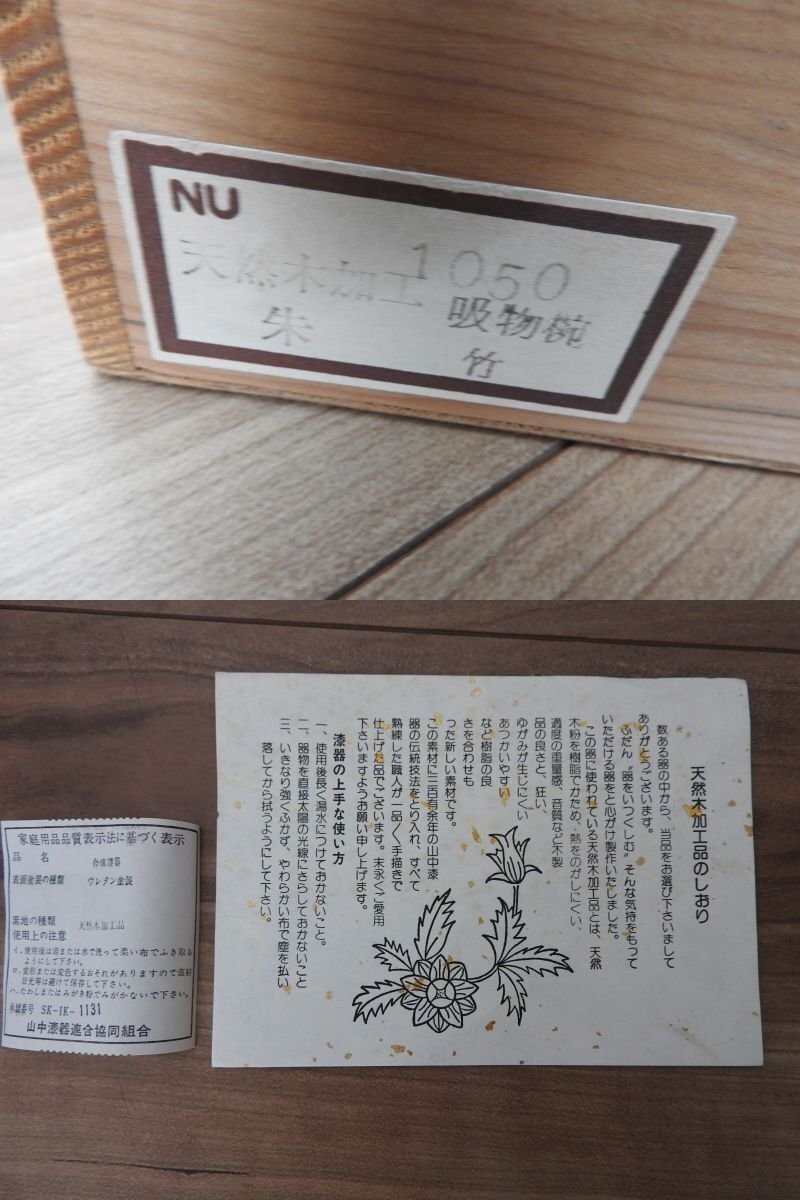 NU
1050
天然木加工 吸物椀
朱 竹
天然木加工品のしおり
数ある器の中から、当品をお選び下さいまして
ありがとうございます。
ふだん〝器をいつくしむ〟そんな気持をもって
いただける器をと心がけ製作いたしました。
この器に使われている天然木加工品とは、天然
木粉を樹脂でかため、熱をのがしにくい、
適度の重量感、音質など木製
品の良さと、狂い、
ゆがみが生じにくい
あつかいやすい
など樹脂の良
さを合わせも
った新しい素材です。
この素材に三百有余年の山中漆
器の伝統技法をとり入れ、すべて
熟練した職人が一品〱手描きで
仕上げた品でございます。末永くご愛用
下さいますようお願い申し上げます。
漆器の上手な使い方
一、使用後長く湯水につけておかないこと。
二、器物を直接太陽の光線にさらしておかないこと
三、いきなり強くふかず、やわらかい布で塵を払い
落してから拭うようにして下さい。
家庭用品品質表示法に基づく表示
品 名 合成漆器
表面塗装の種類 ウレタン塗装
素地の種類 天然木加工品
使用上の注意
イ. 使用後は湯または水で洗って柔い布でふき取る
ようにして下さい。
ロ. 変形または変色するおそれがありますので直射
日光等は避けて保存して下さい。
ハ. たわしまたはみがき粉でみがかないで下さい。
承認番号 SK-IK-1131
山中漆器連合協同組合